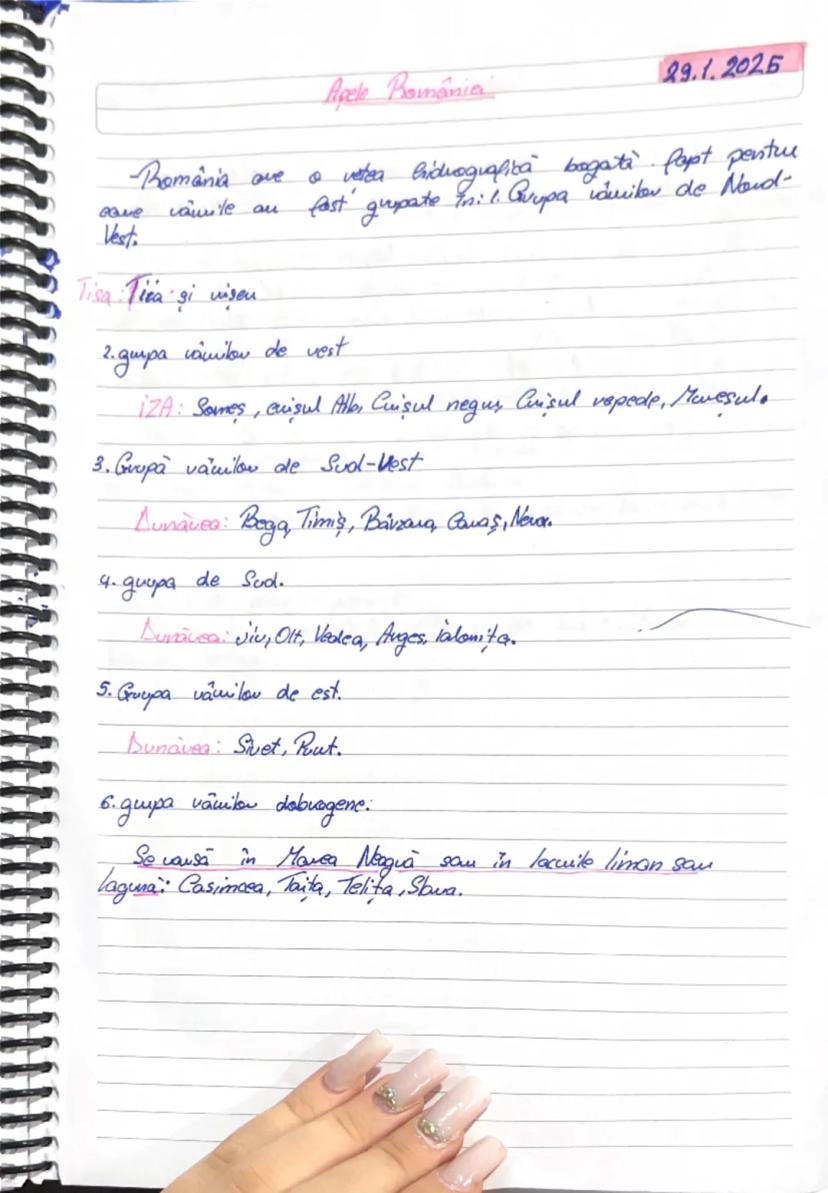 Apele României
29.1.2025
-România are o rețea hidrografică bogată fapt pentru
care râurile au fost grupate în: 1. Grupa râurilor de Nord-
Vest.
Tisa: și vișeu
2. grupa râurilor de vest
IZA: Someș, crișul Alb, Crișul negru, Crișul repede, Mureșul.
3. Grupa râurilor de Sud-Vest
Dunărea: Bega, Timiș, Bârzava, Caraș, Nera.
4. grupa de Sud.
Dunărea: Jiu, Olt, Vedea, Argeș, Ialomița.
5. Grupa râurilor de est.
Dunărea: Siret, Prut.
6. grupa râurilor dobrogene.
Se varsă în Marea Neagră sau în lacurile liman sau
lagună: Casimcea, Taița, Telița, Slava.